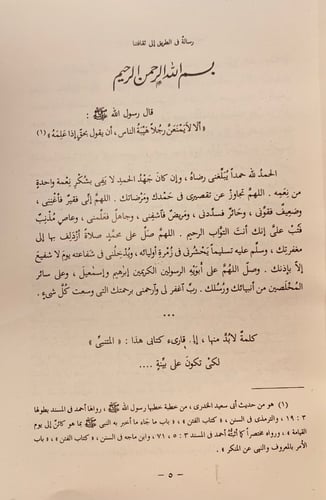 رسالة فى الطريق إلى ثقافتنا
بسم الله الرحمن الرحيم
قال رسول الله ﷺ :
« ألا لا يَمنعَنَّ رجُلاً هَيْبَةُ الناس ، أن يقول بحقٍّ إذا عَلِمَهُ » (١)
الحمدُ لله حمداً يُبَلِّغنى رضاهُ ، وإن كانَ جَهْدُ الحمدِ لا يَفى بشُكْرِ نِعمة واحدةٍ
من نِعَمِه . اللهمَّ تجاوَزْ عن تقصيرى فى حَمْدك ومَرْضاتك . اللهمَّ إنِّى فقيرٌ فأغْنِنى ،
وضعيفٌ فقوِّنى ، وحَائرٌ فسدِّدنى ، ومَريضٌ فاشفِنى ، وجاهلٌ فعَلِّمنى ، وعاصٍ مُذْنِبٌ
فتُبْ علىَّ إنك أنت التوابُ الرحيم . اللهمَّ صلِّ على محمَّدٍ صلاةً أزدَلِفُ بها إلى
مغفرتك ، وسلِّم عليه تسليماً يَحْشُرنى فى زُمْرةِ أوليائه ، ويُدخِلُنى فى شفاعته يومَ لا شفيعَ
إلاّ بإذنك . وصلِّ اللهمَّ على أبَوَيْهِ الرسولين الكريمين إبرهيم وإسمعيل ، وعلى سائر
المُخلَصين من أنبيائك ورُسُلك . ربِّ اغفر لى وارحمنى برحمتك التى وسعت كُلَّ شىءٍ .
• • •
كلمةٌ لابُدَّ منها ، إلى قارىء كتابى هذا : « المتنبى »
لكىْ تكونَ على بيِّنة ....
(١) هو من حديث أبى سعيد الخدرى ، من خطبة خطبها رسول الله ﷺ ، رواها أحمد فى المسند بطولها
٣ : ١٩ ، والترمذى فى السنن ، « كتاب الفتن » ، « باب ما جاء ما أخبر به النبى ﷺ بما هو كائن إلى يوم
القيامة » ، ورواه مختصراً كما أثبتُّه أحمد فى المسند ٣ : ٥ ، ٧١ ، وابن ماجه فى السنن ، « كتاب الفتن » ، « باب
الأمر بالمعروف والنهى عن المنكر » .
– ٥ –